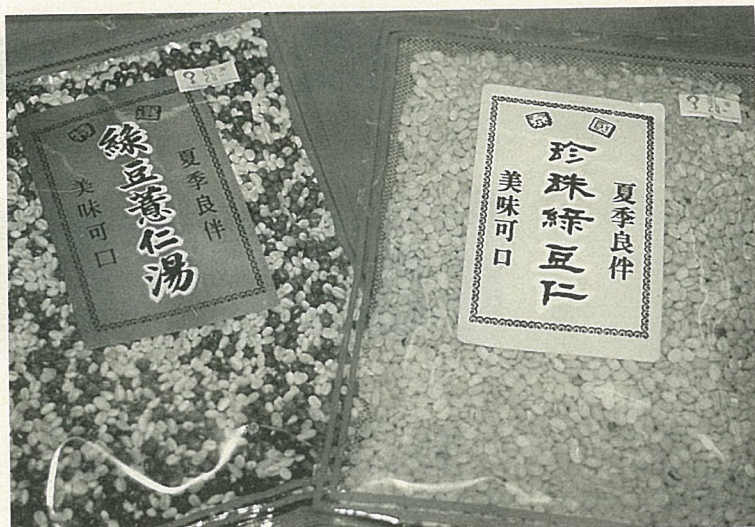 特選
夏季良伴
綠豆薏仁湯
美味可口
泰國
夏季良伴
珍珠綠豆仁
美味可口